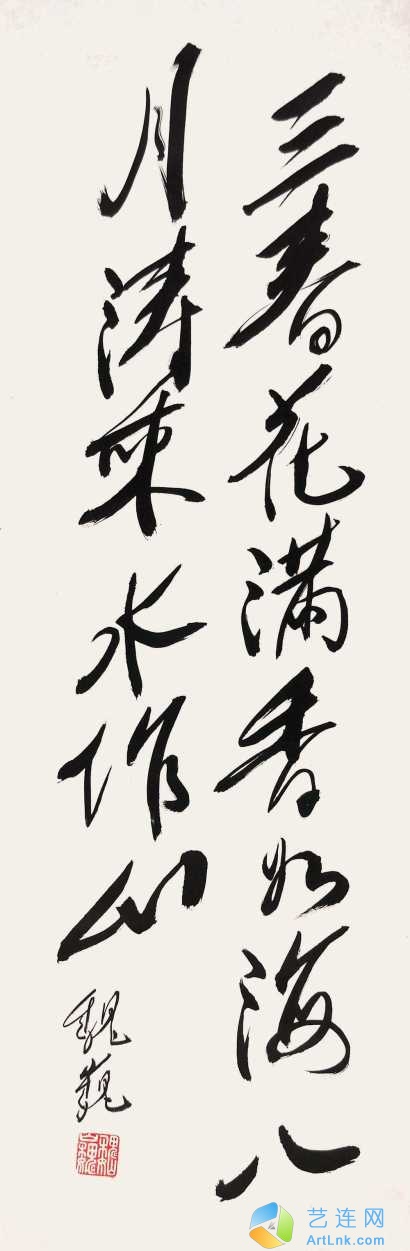 三春花满香如海八
月涛來水作山
魏巍
艺连网
ArtLnk.com